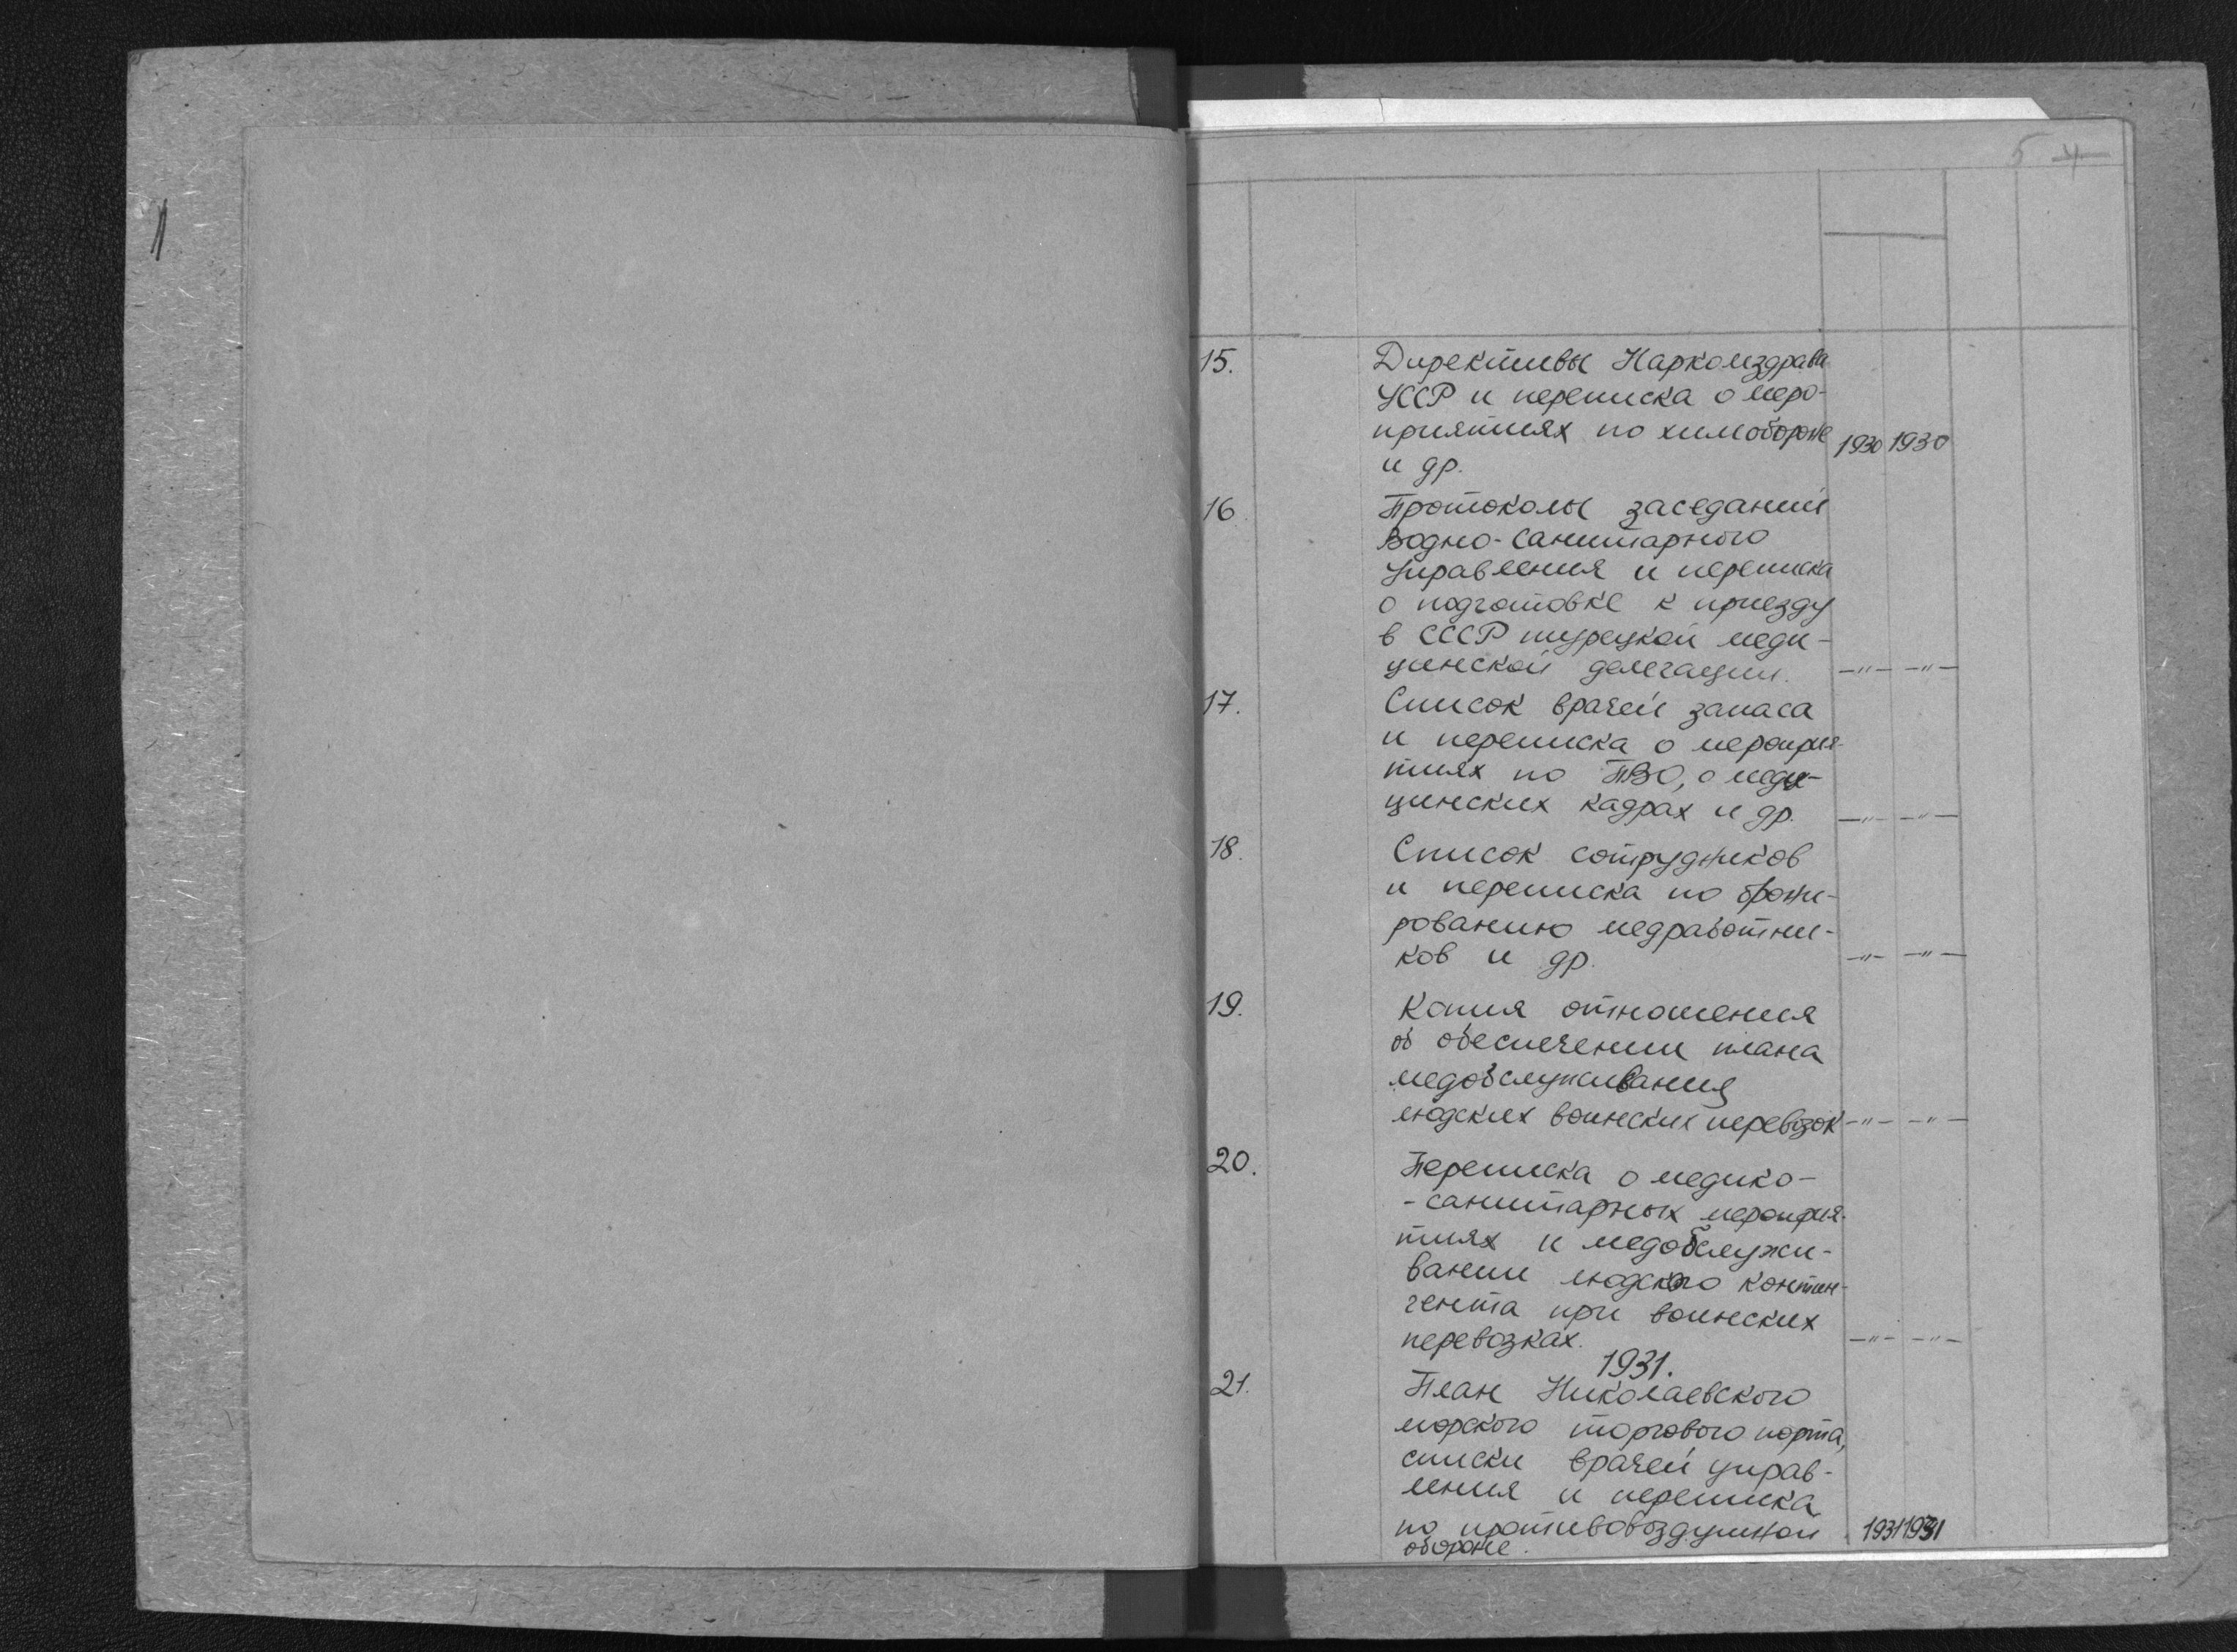 5 4
15. Директивы Наркомздрава
УССР и переписка о меро-
приятиях по химобороне 1930 1930
и др.
16. Протоколы заседаний
Водно-Санитарного
Управления и переписка
о подготовке к приезду
в СССР турецкой меди-
цинской делегации. —"— —"—
17. Список врачей запаса
и переписка о мероприя-
тиях по ПВО, о меди-
цинских кадрах и др. —"— —"—
18. Список сотрудников
и переписка по брони-
рованию медработни-
ков и др. —"— —"—
19. Копия отношения
об обеспечении плана
медобслуживания
людских воинских перевозок —"— —"—
20. Переписка о медико-
-санитарных мероприя-
тиях и медобслужи-
вании людского контин-
гента при воинских
перевозках. —"— —"—
1931.
21. План Николаевского
морского торгового порта,
списки врачей управ-
ления и переписка
по противовоздушной 1931 1931
обороне.